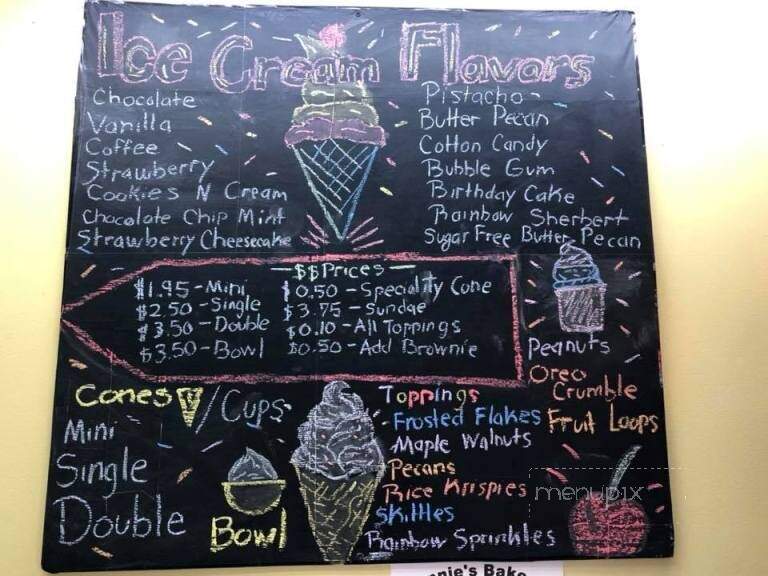 Ice Cream Flavors
Chocolate
Vanilla
Coffee
Strawberry
Cookies N Cream
Chocolate Chip Mint
Strawberry Cheesecake
Pistacho
Butter Pecan
Cotton Candy
Bubble Gum
Birthday Cake
Rainbow Sherbert
Sugar Free Butter Pecan
$$Prices
$1.95-Mini
$2.50-Single
$3.50-Double
$3.50-Bowl
$0.50-Speciality Cone
$3.75-Sundae
$0.10-All Toppings
$0.50-Add Brownie
Cones/Cups
Mini
Single
Double
Bowl
Toppings
Frosted Flakes
Maple Walnuts
Pecans
Rice Krispies
Skittles
Rainbow Sprinkles
Peanuts
Oreo
Crumble
Fruit Loops
menupix